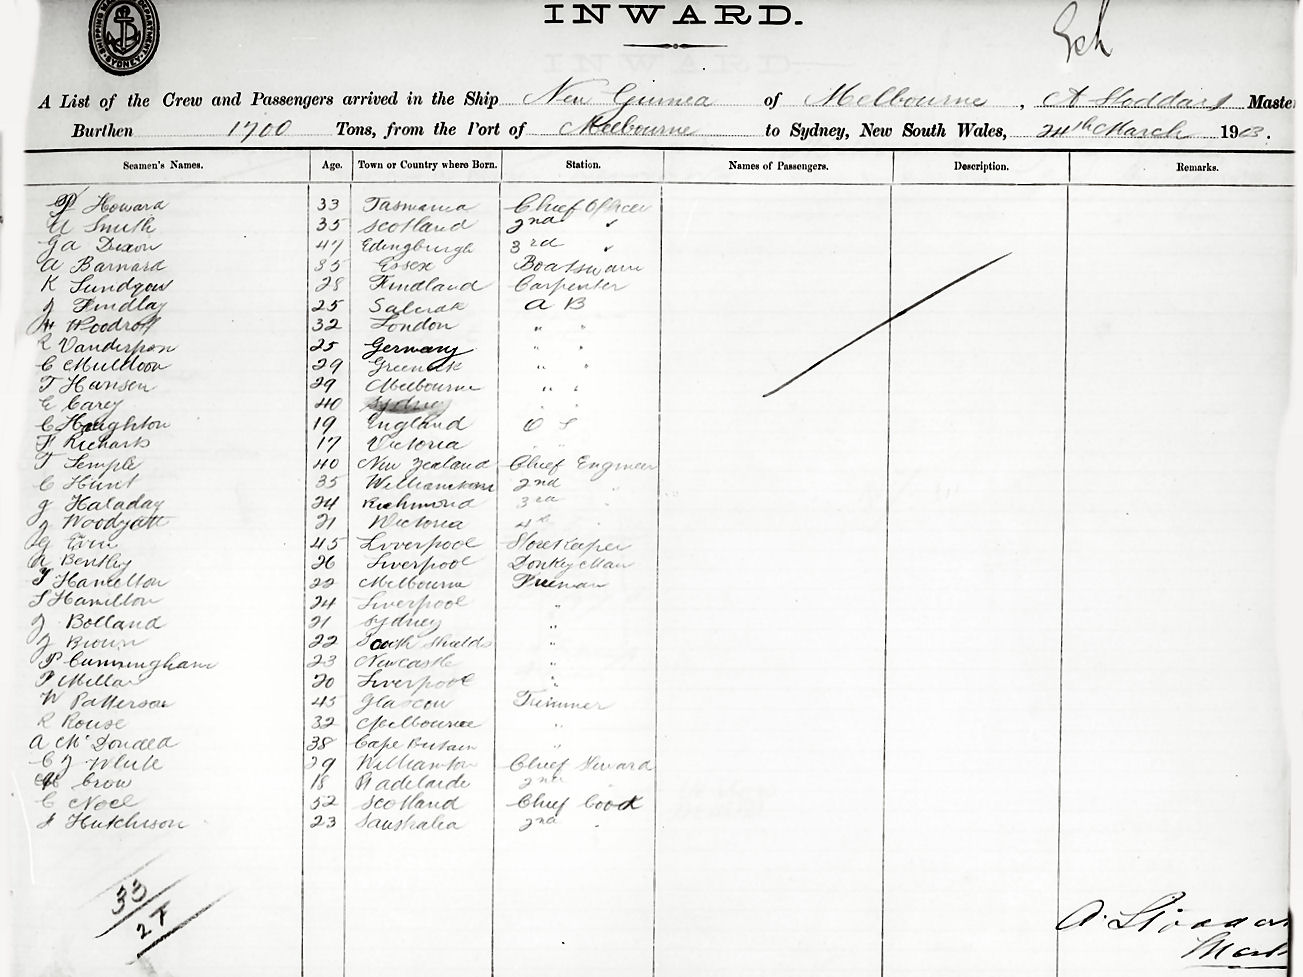 INWARD.
A List of the Crew and Passengers arrived in the Ship New Guinea of Melbourne, A Stoddart Master
Burthen 1700 Tons, from the Port of Melbourne to Sydney, New South Wales, 24th March 1903.
Seamen's Names. Age. Town or Country where Born. Station. Names of Passengers. Description. Remarks.
Howard 33 Tasmania Chief Officer
Smith 35 Scotland 2nd "
Ga Dixon 47 Edingburgh 3rd "
A Barnard 35 Essex Boatswain
K Lundgow 28 Findland Carpenter
J Findlay 25 A B
H Woodroff 32 London " "
R Vanderpon 25 Germany " "
C Muldoon 29 Greenock " "
T Hansen 29 Melbourne " "
E Carey 40 Sydney " "
C Houghton 19 England O S
F Richards 17 Victoria " "
T Temple 40 New Zealand Chief Engineer
C Hunt 35 Williamstown 2nd "
J Haladay 24 Richmond 3rd "
J Woodyatt 21 Victoria 4th "
45 Liverpool Storekeeper
Bentley 26 Liverpool Donkey Man
T Hamelton 22 Melbourne Fireman
S Hamilton 24 Liverpool "
J Bolland 21 Sydney "
J Brown 22 South Shields "
P Cunningham 23 Newcastle "
P Millar 20 Liverpool "
W Patterson 45 Glascow Trimmer
R Rouse 32 Melbourne "
A McDonald 38 Cape Britain "
C J White 29 Williamton Chief Steward
Crow 18 Adelaide 2nd "
C Noel 52 Scotland Chief Cook
J Hutchison 23 Saustralia 2nd "
33
27
A. Stoddart